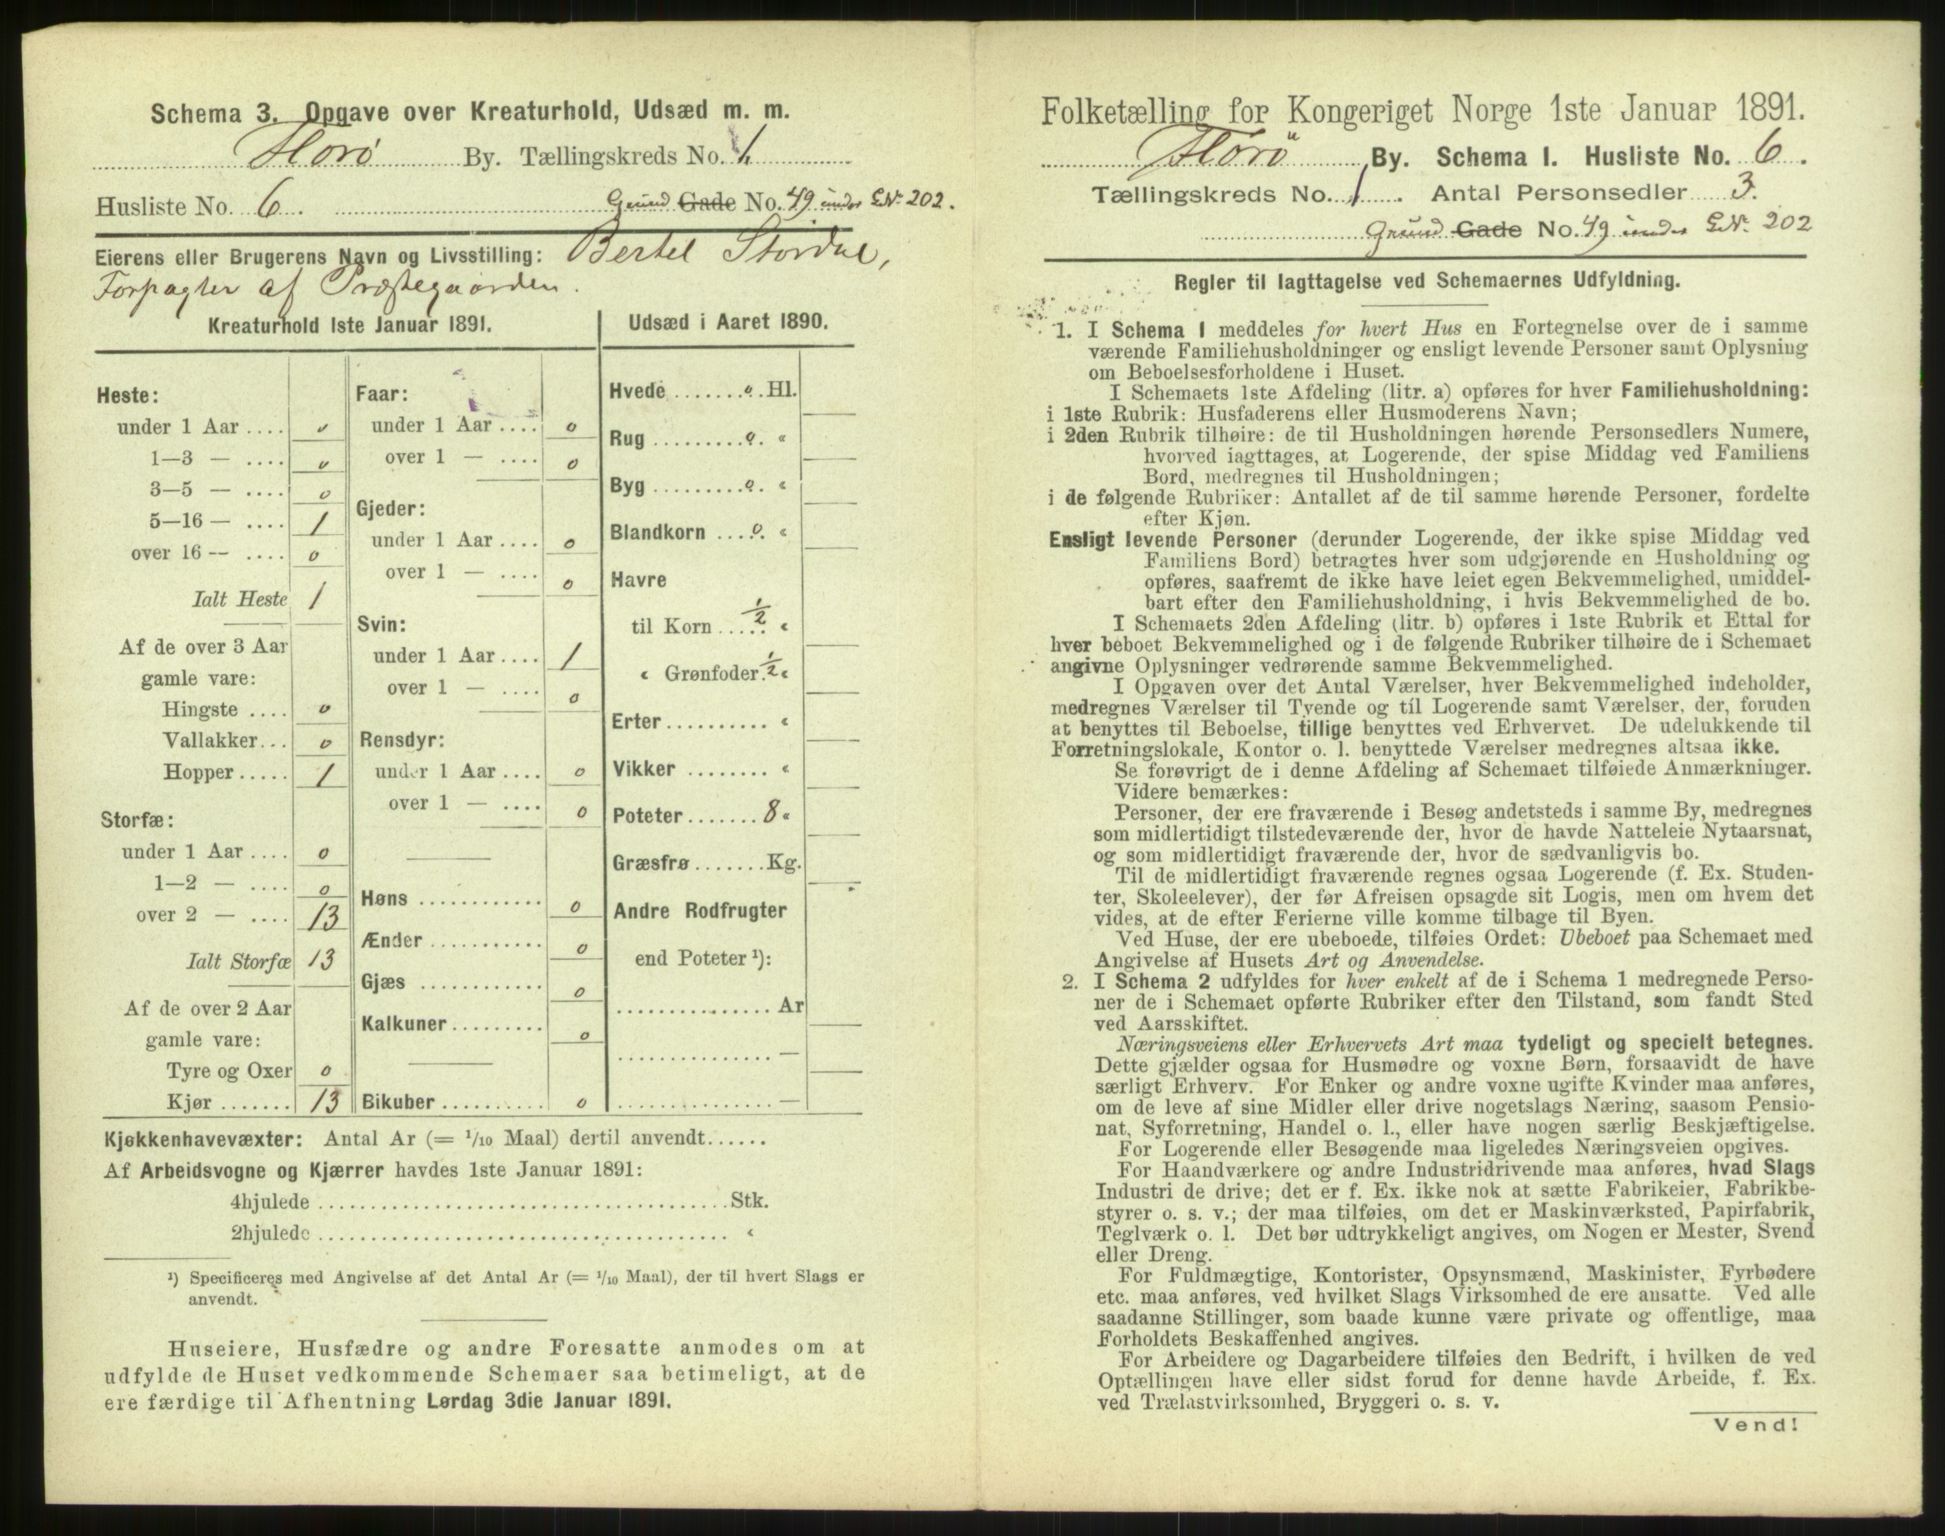 Schema 3. Opgave over Kreaturhold, Udsæd m. m.
Florø By. Tællingskreds No. 1.
Husliste No. 6. Grund Gade No. 49 under G.Nr. 202.
Eierens eller Brugerens Navn og Livsstilling: Bertel Stordal,
Forpagter af Præstegaarden.
Kreaturhold 1ste Januar 1891.
Heste:
under 1 Aar .... 0
1—3 — .... 0
3—5 — .... 0
5—16 — .... 1
over 16 — .... 0
Ialt Heste 1
Af de over 3 Aar
gamle vare:
Hingste .... 0
Vallakker... 0
Hopper..... 1
Storfæ:
under 1 Aar .... 0
1—2 — .... 0
over 2 — .... 13
Ialt Storfæ 13
Af de over 2 Aar
gamle vare:
Tyre og Oxer 0
Kjør....... 13
Faar:
under 1 Aar .... 0
over 1 — .... 0
Gjeder:
under 1 Aar .... 0
over 1 — .... 0
Svin:
under 1 Aar .... 1
over 1 — .... 0
Rensdyr:
under 1 Aar .... 0
over 1 — .... 0
Høns ............ 0
Ænder ........... 0
Gjæs ............ 0
Kalkuner......... 0
Bikuber .......... 0
Udsæd i Aaret 1890.
Hvede ....... 0 .. Hl.
Rug ......... 0. "
Byg ......... 0. "
Blandkorn .... 0. "
Havre
til Korn ..... 1/2 "
" Grønfoder. 1/2 "
Erter .......... "
Vikker ........ "
Poteter ....... 8 "
Græsfrø ....... Kg.
Andre Rodfrugter
end Poteter ¹):
............... Ar
............... —
............... —
Kjøkkenhavevæxter: Antal Ar (= 1/10 Maal) dertil anvendt......
Af Arbeidsvogne og Kjærrer havdes 1ste Januar 1891:
4hjulede ........................................ Stk.
2hjulede ........................................ "
¹) Specificeres med Angivelse af det Antal Ar (= 1/10 Maal), der til hvert Slags er
anvendt.
Huseiere, Husfædre og andre Foresatte anmodes om at
udfylde de Huset vedkommende Schemaer saa betimeligt, at de
ere færdige til Afhentning Lørdag 3die Januar 1891.
Folketælling for Kongeriget Norge 1ste Januar 1891.
Florö By. Schema 1. Husliste No. 6.
Tællingskreds No. 1. Antal Personsedler 3.
Grund Gade No. 49 under G.Nr. 202
Regler til Iagttagelse ved Schemaernes Udfyldning.
1. I Schema 1 meddeles for hvert Hus en Fortegnelse over de i samme
værende Familiehusholdninger og ensligt levende Personer samt Oplysning
om Beboelsesforholdene i Huset.
I Schemaets 1ste Afdeling (litr. a) opføres for hver Familiehusholdning:
i 1ste Rubrik: Husfaderens eller Husmoderens Navn;
i 2den Rubrik tilhøire: de til Husholdningen hørende Personsedlers Numere,
hvorved iagttages, at Logerende, der spise Middag ved Familiens
Bord, medregnes til Husholdningen;
i de følgende Rubriker: Antallet af de til samme hørende Personer, fordelte
efter Kjøn.
Ensligt levende Personer (derunder Logerende, der ikke spise Middag ved
Familiens Bord) betragtes hver som udgjørende en Husholdning og
opføres, saafremt de ikke have leiet egen Bekvemmelighed, umiddel-
bart efter den Familiehusholdning, i hvis Bekvemmelighed de bo.
I Schemaets 2den Afdeling (litr. b) opføres i 1ste Rubrik et Ettal for
hver beboet Bekvemmelighed og i de følgende Rubriker tilhøire de i Schemaet
angivne Oplysninger vedrørende samme Bekvemmelighed.
I Opgaven over det Antal Værelser, hver Bekvemmelighed indeholder,
medregnes Værelser til Tyende og til Logerende samt Værelser, der, foruden
at benyttes til Beboelse, tillige benyttes ved Erhvervet. De udelukkende til
Forretningslokale, Kontor o. l. benyttede Værelser medregnes altsaa ikke.
Se forøvrigt de i denne Afdeling af Schemaet tilføiede Anmærkninger.
Videre bemærkes:
Personer, der ere fraværende i Besøg andetsteds i samme By, medregnes
som midlertidigt tilstedeværende der, hvor de havde Natteleie Nytaarsnat,
og som midlertidigt fraværende der, hvor de sædvanligvis bo.
Til de midlertidigt fraværende regnes ogsaa Logerende (f. Ex. Studen-
ter, Skoleelever), der før Afreisen opsagde sit Logis, men om hvem det
vides, at de efter Ferierne ville komme tilbage til Byen.
Ved Huse, der ere ubeboede, tilføies Ordet: Ubeboet paa Schemaet med
Angivelse af Husets Art og Anvendelse.
2. I Schema 2 udfyldes for hver enkelt af de i Schema 1 medregnede Perso-
ner de i Schemaet opførte Rubriker efter den Tilstand, som fandt Sted
ved Aarsskiftet.
Næringsveiens eller Erhvervets Art maa tydeligt og specielt betegnes.
Dette gjælder ogsaa for Husmødre og voxne Børn, forsaavidt de have
særligt Erhverv. For Enker og andre voxne ugifte Kvinder maa anføres,
om de leve af sine Midler eller drive nogetslags Næring, saasom Pensio-
nat, Syforretning, Handel o. l., eller have nogen særlig Beskjæftigelse.
For Logerende eller Besøgende maa ligeledes Næringsveien opgives.
For Haandværkere og andre Industridrivende maa anføres, hvad Slags
Industri de drive; det er f. Ex. ikke nok at sætte Fabrikeier, Fabrikbe-
styrer o. s. v.; der maa tilføies, om det er Maskinværksted, Papirfabrik,
Teglværk o. l. Det bør udtrykkeligt angives, om Nogen er Mester, Svend
eller Dreng.
For Fuldmægtige, Kontorister, Opsynsmænd, Maskinister, Fyrbødere
etc. maa anføres, ved hvilket Slags Virksomhed de ere ansatte. Ved alle
saadanne Stillinger, som baade kunne være private og offentlige, maa
Forholdets Beskaffenhed angives.
For Arbeidere og Dagarbeidere tilføies den Bedrift, i hvilken de ved
Optællingen have eller sidst forud for denne havde Arbeide, f. Ex.
ved Trælastvirksomhed, Bryggeri o. s. v.
Vend!